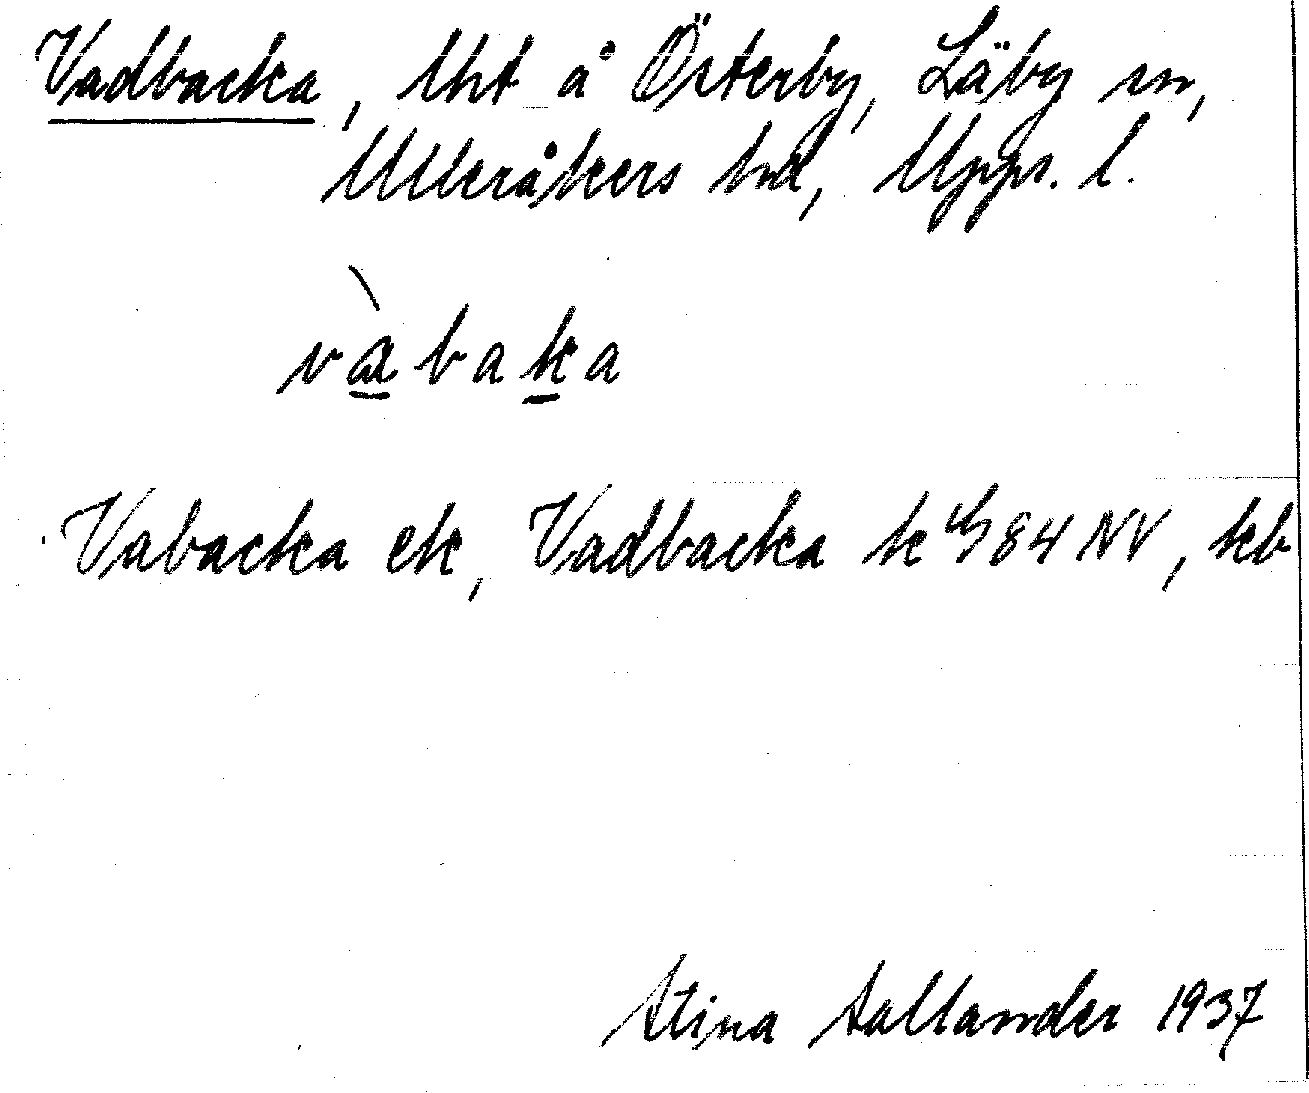 Vadbacka, lht å Österby, Läby sn,
Ulleråkers hd, Upps. l.
vàbaka
Vabacka ek, Vadbacka k 84 NV, kb
Stina Sallander 1937